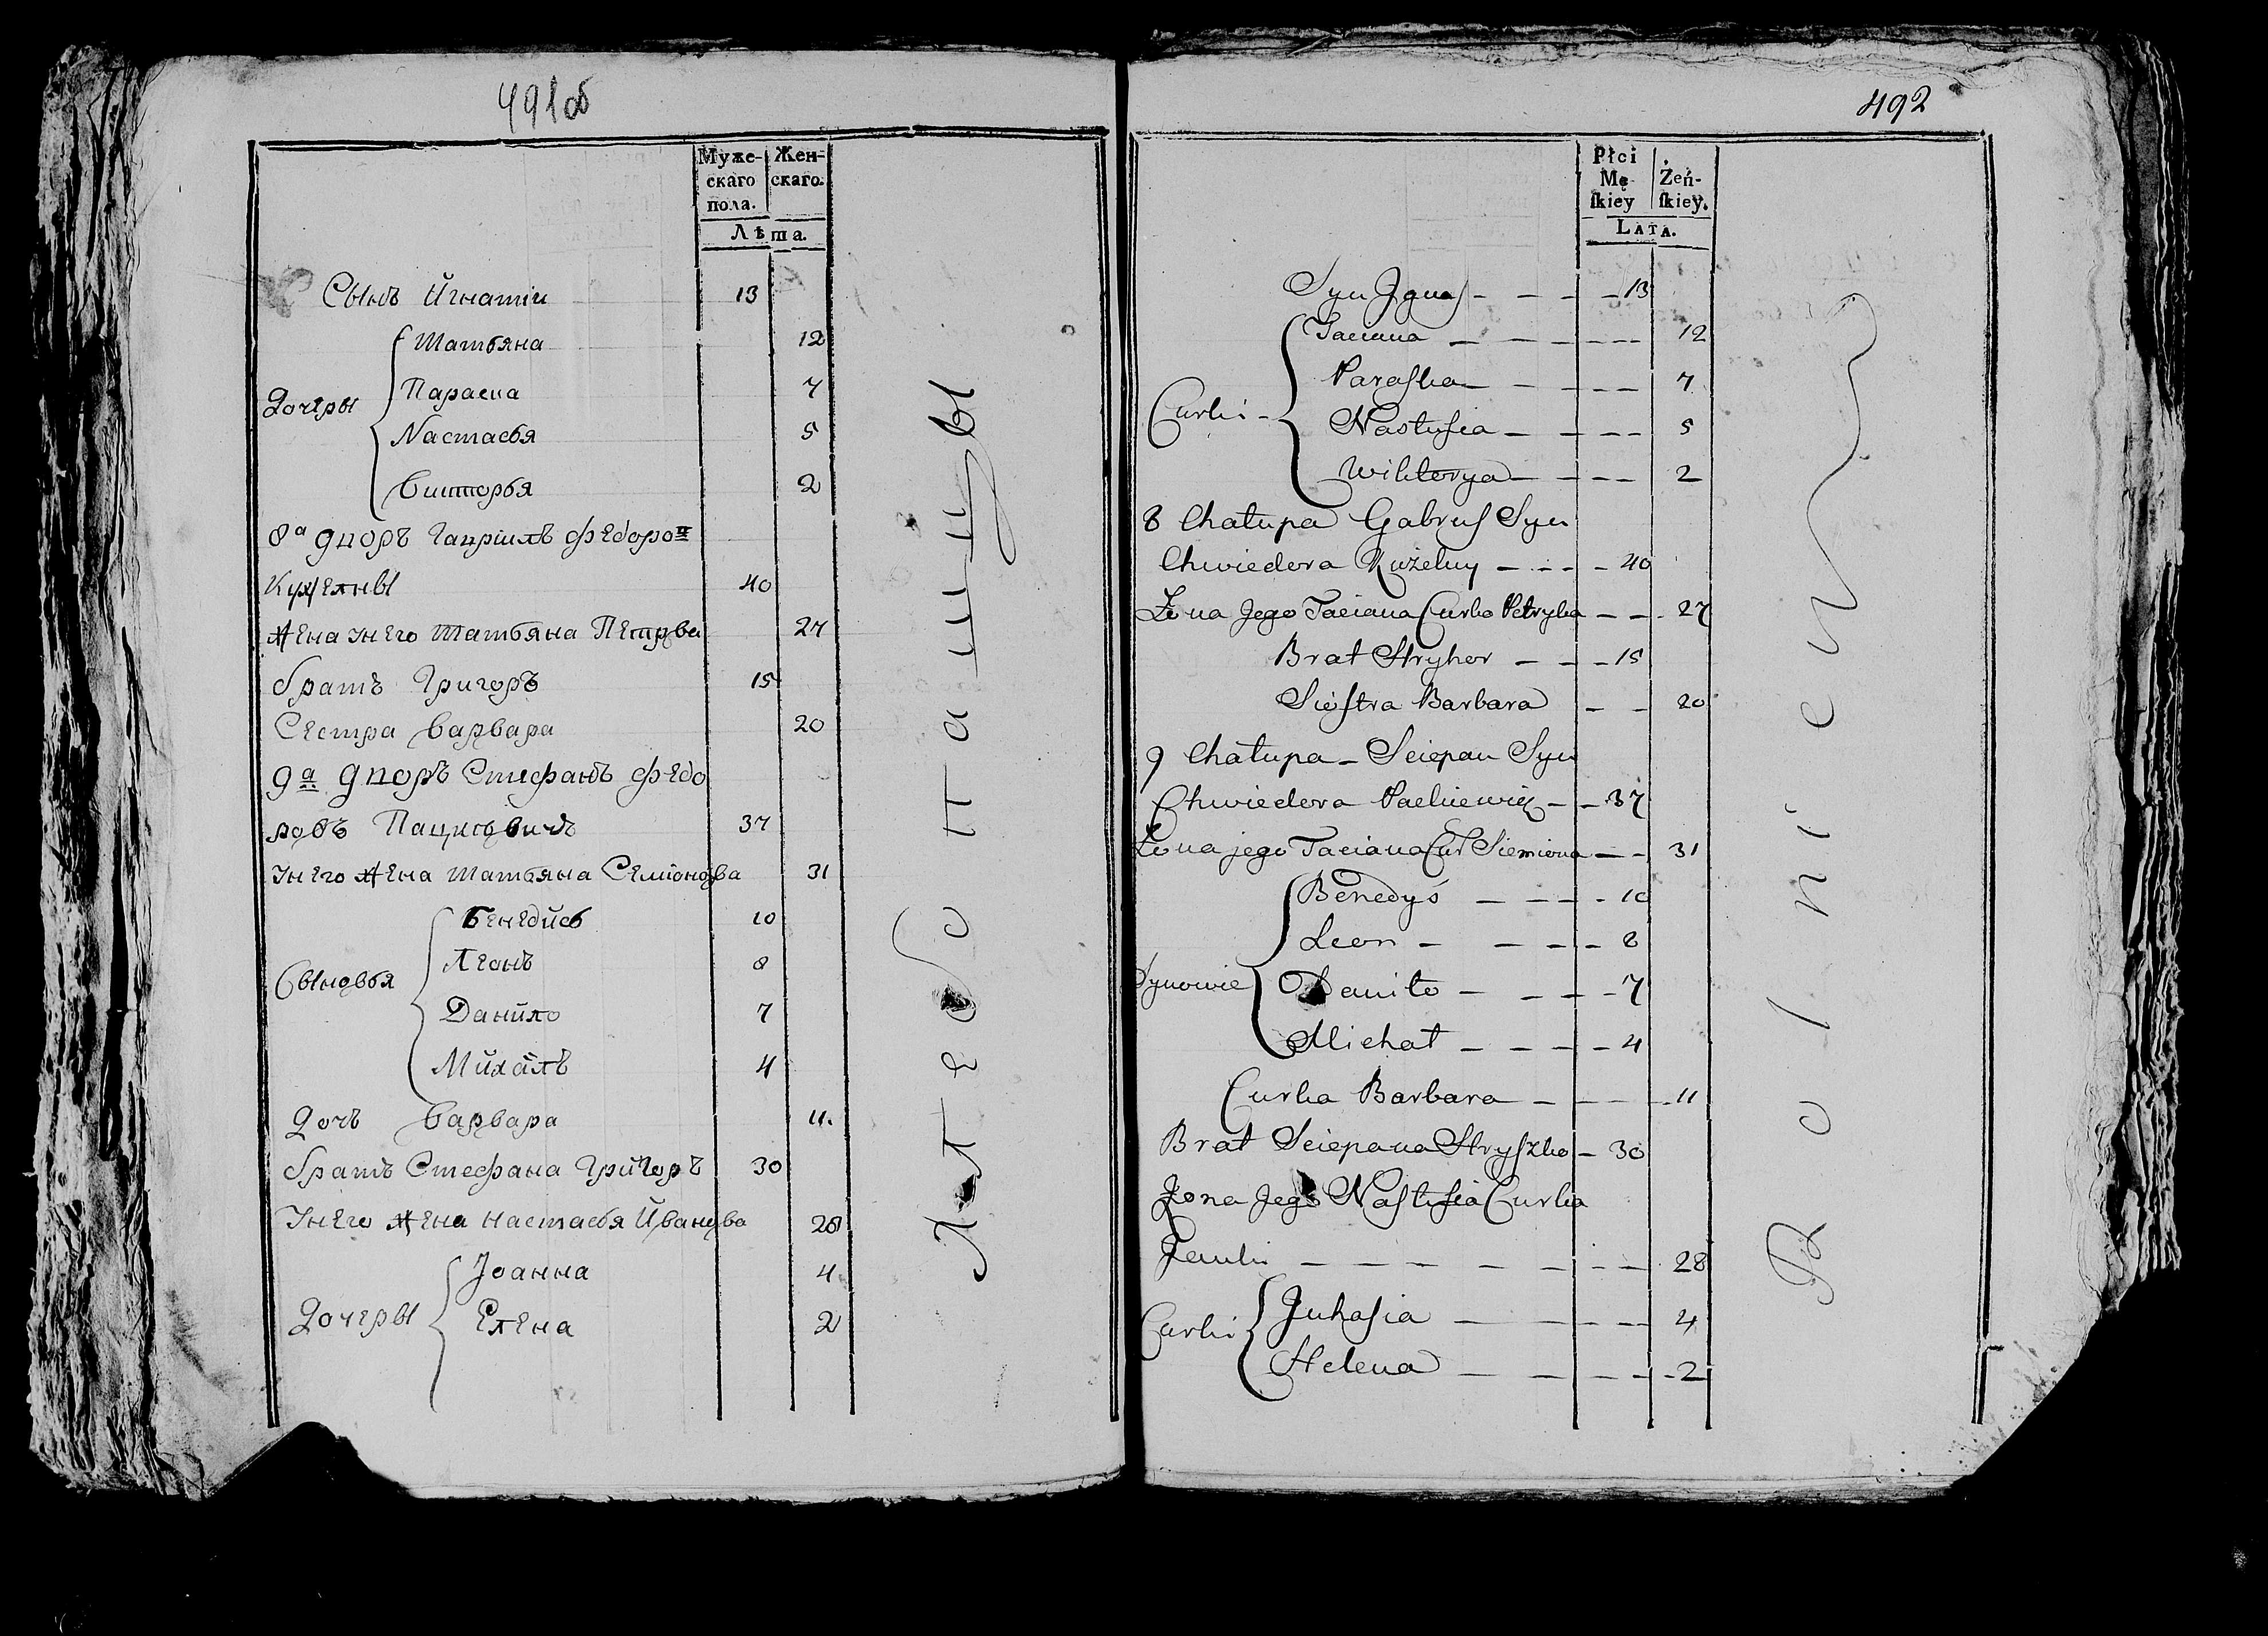 491об
Муже-
скаго
пола.
Жен-
скаго.
Лѣта.
Сынъ Игнатіи 13
Татьяна 12
Дочеры Параска 7
Настасья 5
Викторья 2
8а дворъ Гавріилъ Федоро
Кужелны 40
Жена унего Татьяна Петрва 27
братъ Григоръ 15
Сестра Варвара 20
9а дворъ Стефанъ Федо
ровъ Пацкевичъ 37
Унего Жена Татьяна Семіонова 31
Бенедисъ 10
Сыновья Леонъ 8
Данило 7
Михаилъ 4
Дочъ Варвара 11.
братъ Стефана Григоръ 30
Унего Жена Настасья Иванова 28
Іоанна 4
Дочеры Елена 2
Хлебопашцы
492
Płci
Mę-
ſkiey
Zeń-
ſkiey.
LATA.
Syn Jgnaſ 13
Taciana 12
Paraſka 7
Curki Nastuſia 5
Wiktorya 2
8 Chałupa Gabruſ Syn
Chwiedora Kużelny 40
Zona Jego Taciana Curka Petryka 27
Brat Hryhor 15
Sioſtra Barbara 20
9 Chałupa Sciepan Syn
Chwiedora Packiewicz 37
Zona jego Taciana Cur Siemiona 31
Benedyś 10
Leon 8
Synowie Daniło 7
Michał 4
Curka Barbara 11
Brat Sciepana Hryſzko 30
Zona Jego Naſtuſia Curka
Janki 28
Curki Juhaſia 4
Helena 2
Rolnicy